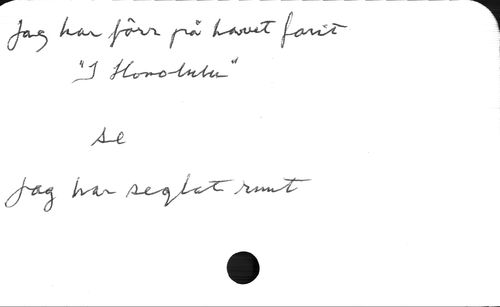 Jag har förr på havet farit
"I Honolulu"
se
Jag har seglat runt